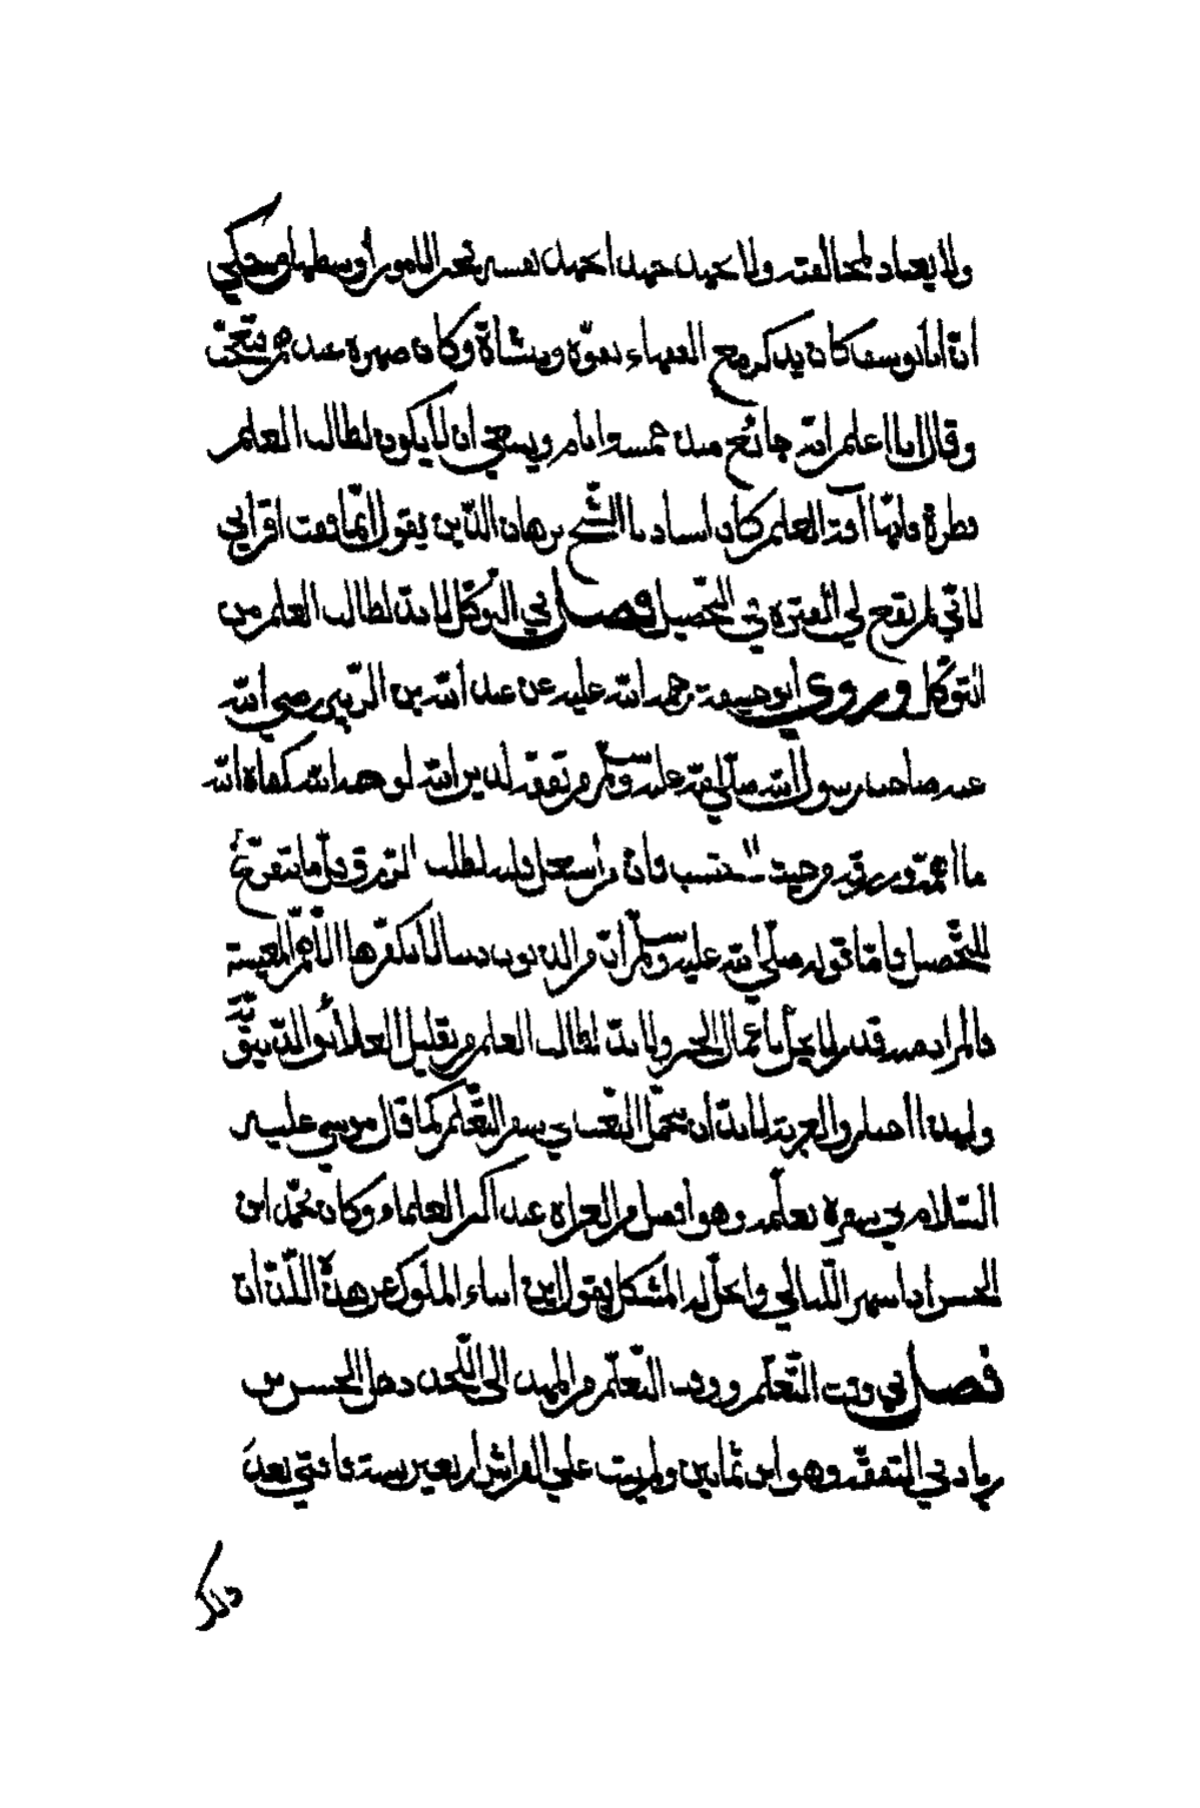 ولا يعتاد المخالفته ولا يجهد جهدا يجهد نفسه بخير الامور أوسطها وحكي
ان أبا يوسف كان يذكر مع الفقهاء بقوة ونشاة وكان صهره عنده يتعجب
وقال انا اعلم انه جائع منذ خمسة ايام وينبغي ان لا يكون لطالب العلم
فطرة فانها آفة العلم كان استادنا الشيخ برهان الدين يقول انما فقت اقراني
لاني لم تقع لي الفترة في التحصيل فصل في التوكل لا بد لطالب العلم من
التوكل وروي أبو حنيفة رحمه الله عليه عن عبد الله بن الزبير رضي الله
عنه صاحب رسول الله صلى الله عليه وسلم من تفقه لدين الله كفاه الله
ما اهمه ورزقه من حيث لا يحتسب فان من أشتغل قلبه لطلب الرزق قل ما يتفرغ
للتحصيل فاما قوله صلى الله عليه وسلم أن من الذنوب ذنبا لا يكفرها الا هم المعيشة
فالمراد منه قدر لا يخل باعمال الخير ولا بد لطالب العلم من تقليل العلائق الدنيوية
ولهذا اختاروا الغربة لا بد أن يتحمل التعب في سفر التعلم كما قال موسي عليه
السلام في سفره تعلمه وهو أفضل من الغزاة عند اكثر العلماء وكان محمد ابن
الحسن أذا سهر الليالي وانحل له المشكل يقول اين ابناء الملوك عن هذه اللذة ان
فصل في وقت التعلم ووقت التعلم من المهد الى اللحد دخل الحسن بن
زياد في التفقه وهو ابن ثمانين ولم يبت علي الفراش اربعين سنة فافتي بعد
ذلك